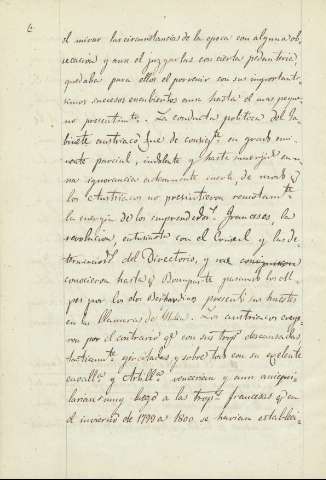 6
el mirar las circunstancias de la epoca con alguna ob,
secacion y aun el juzgarlas con cierta pedanteria
quedaba para ellos el porvenir con sus importantí-
simos sucesos encubiertos aun hasta el mas peque
no presentimto. La conducta politica del Ga,
binete austriaco fue de consigte. en grado emi,
nente parcial, indolente y hasta sumergida en u-
na ignorancia extremamente cierta, de modo q
los Austriacos no presintieron remotamte
la energia de los emprendedors. franceses, la
revolucion, entusiasta con el Consul y las de
terminacions. del Directorio, y no
conocieron hasta q Bonaparte pasando los Al-
pes por los dos Bernardinos presentó sus huestes
en las llanuras de Milan. Los austriacos creye,
ron por el contrario qe con sus trops. descansadas
tacticamte. ejercitadas y sobre todo con su excelente
caballa. y Artilla. vencerian y aun aniqui-
larian muy luego a las trops. francesas qe en
el invierno de 1799 a 1800 se havian estableci-